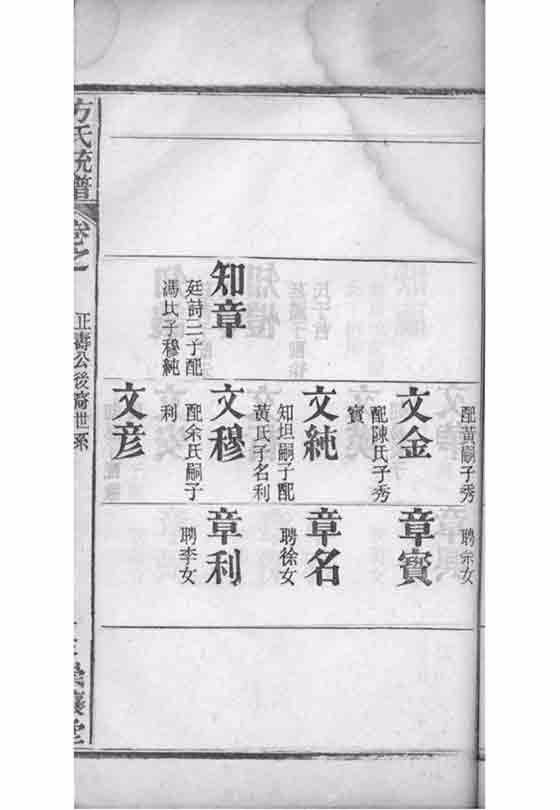 知章
廷詩二子配
馮氏子穆純
配黃嗣子秀
文金
配陳氏子秀
賓
文純
知坦嗣子配
黃氏子名利
文穆
配余氏嗣子
利
文彦
聘余女
章賓
章名
聘徐女
章利
聘李女
方氏統譜
卷之
正壽公後裔世系